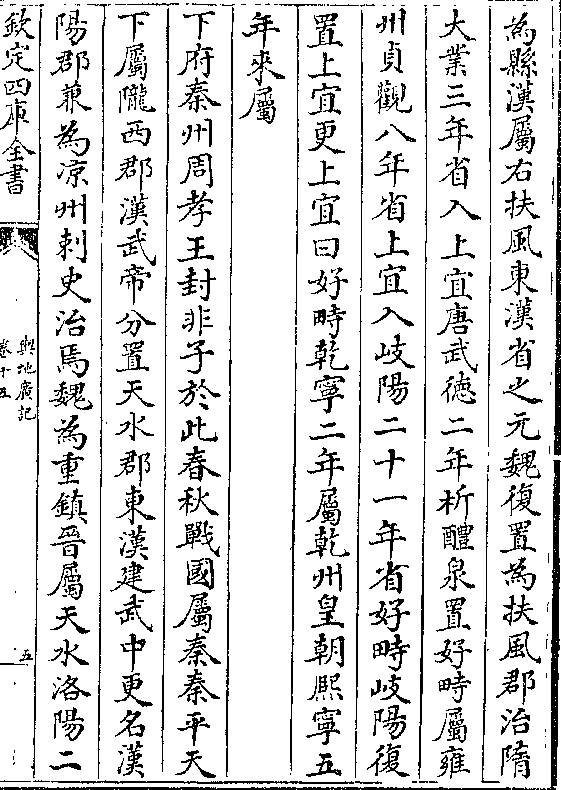 為縣漢屬右扶風東漢省之元魏復置為扶風郡治隋
大業三年省入上宜唐武徳二年析醴泉置好畤屬雍
州貞觀八年省上宜入岐陽二十一年省好畤岐陽復
置上宜更上宜曰好畤乾寧二年屬乾州皇朝熈寧五
年來屬
下府秦州周孝王封非子於此春秋戰國屬秦秦平天
下屬隴西郡漢武帝分置天水郡東漢建武中更名漢
陽郡兼為凉州刺史治焉魏為重鎮晉屬天水洛陽二
欽定四庫全書
輿地廣記
卷十五
五